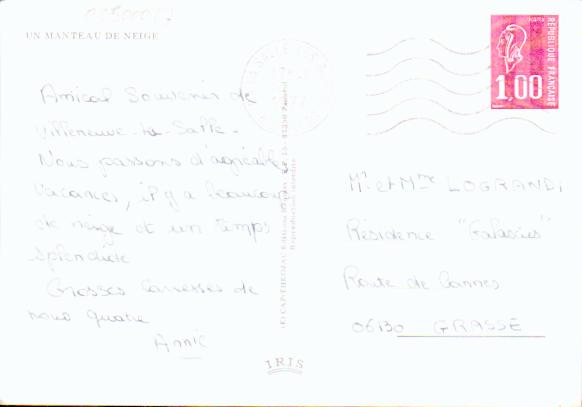 UN MANTEAU DE NEIGE
Amical Souvenir de
Villeneuve-la-Salle.
Nous passons d'agréables
vacances, il y a beaucoup
de neige et un temps
splendide
Grosses caresses de
nous quatre
Annie
IRIS
RÉPUBLIQUE FRANÇAISE
1,00
Mr et Mme LOGRANDI
Résidence "Galaxies"
Route de Cannes
06130 GRASSE